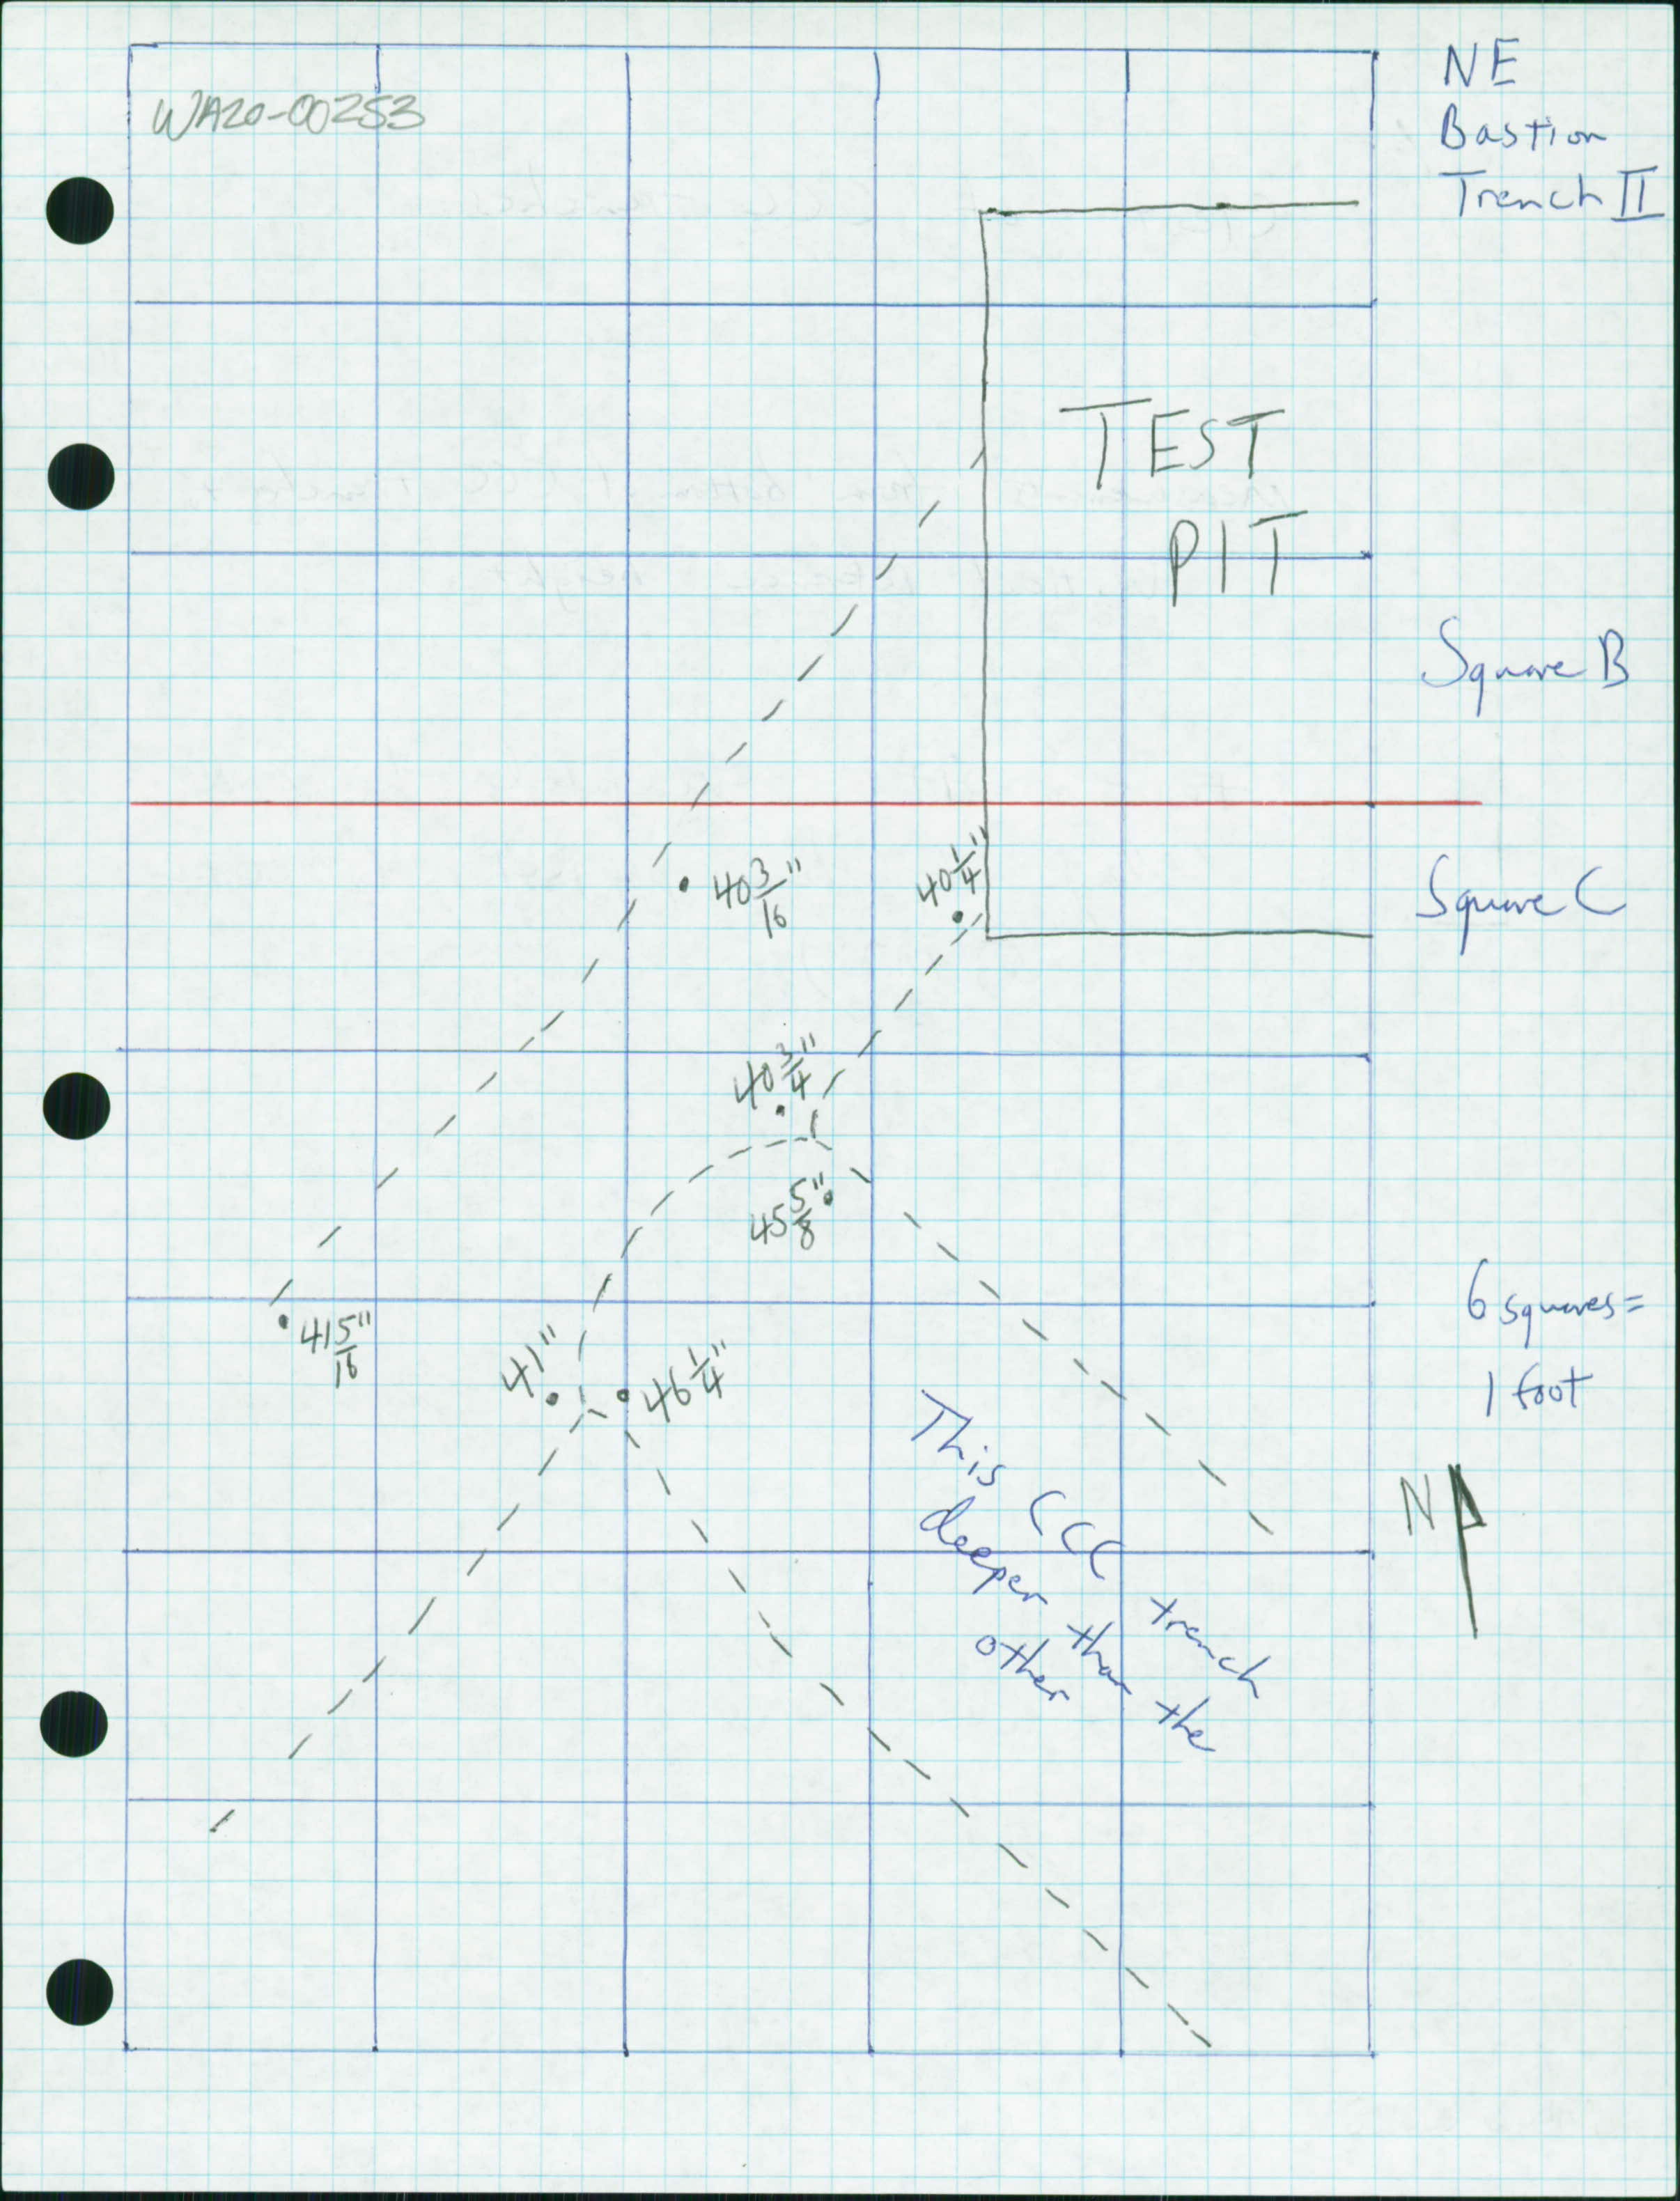 NE
Bastion
Trench II
WA20-00253
TEST
PIT
Square B
40 1/4"
40 3/16"
Square C
40 3/4"
45 5/8"
6 squares =
1 foot
41 5/16"
41"
46 1/4"
This CCC trench
deeper than the
other
N